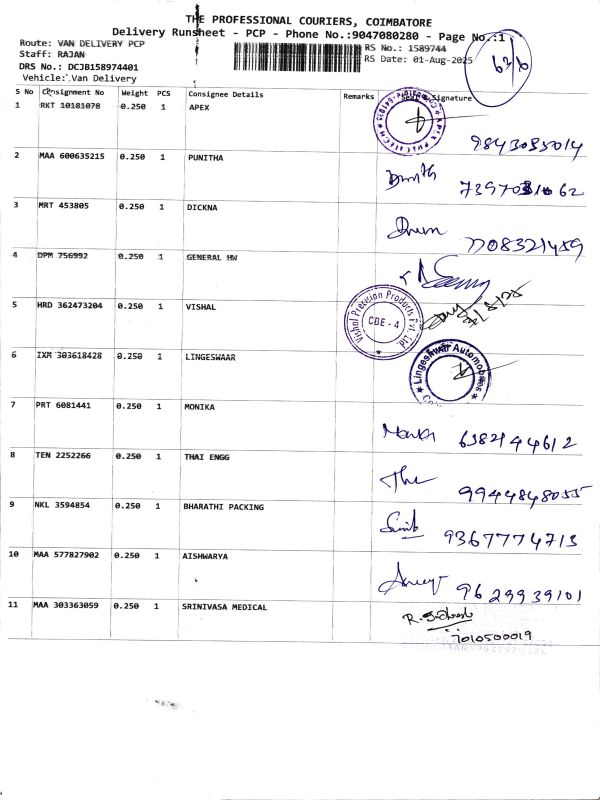 THE PROFESSIONAL COURIERS, COIMBATORE
Delivery Runsheet - PCP - Phone No.:9047080280 - Page No.:1
Route: VAN DELIVERY PCP
RS No.: 1589744
Staff: RAJAN
RS Date: 01-Aug-2025
DRS No.: DCJB158974401
Vehicle: Van Delivery
S No Consignment No Weight PCS Consignee Details Remarks Seal & Signature
1 RKT 10181078 0.250 1 APEX
9843035014
2 MAA 600635215 0.250 1 PUNITHA
3 MRT 453805 0.250 1 DICKNA
7708321489
4 DPM 756992 0.250 1 GENERAL HW
5 HRD 362473204 0.250 1 VISHAL
Vishal Precision Products Pvt. Ltd.
CBE - 4
6 IXM 303618428 0.250 1 LINGESWAAR
Lingeshwar Automobiles
7 PRT 6081441 0.250 1 MONIKA
6382144612
8 TEN 2252266 0.250 1 THAI ENGG
9944848055
9 NKL 3594854 0.250 1 BHARATHI PACKING
9367774713
10 MAA 577827902 0.250 1 AISHWARYA
9629939101
11 MAA 303363059 0.250 1 SRINIVASA MEDICAL
7010500019